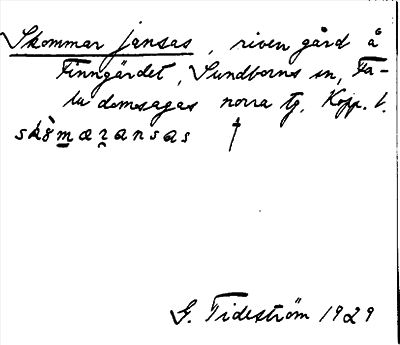 Skommar jansas, riven gård å
Finngärdet, Sundborns sn, Fa-
lu domsagas norra tg, Kopp. l.
†
G. Tideström 1929